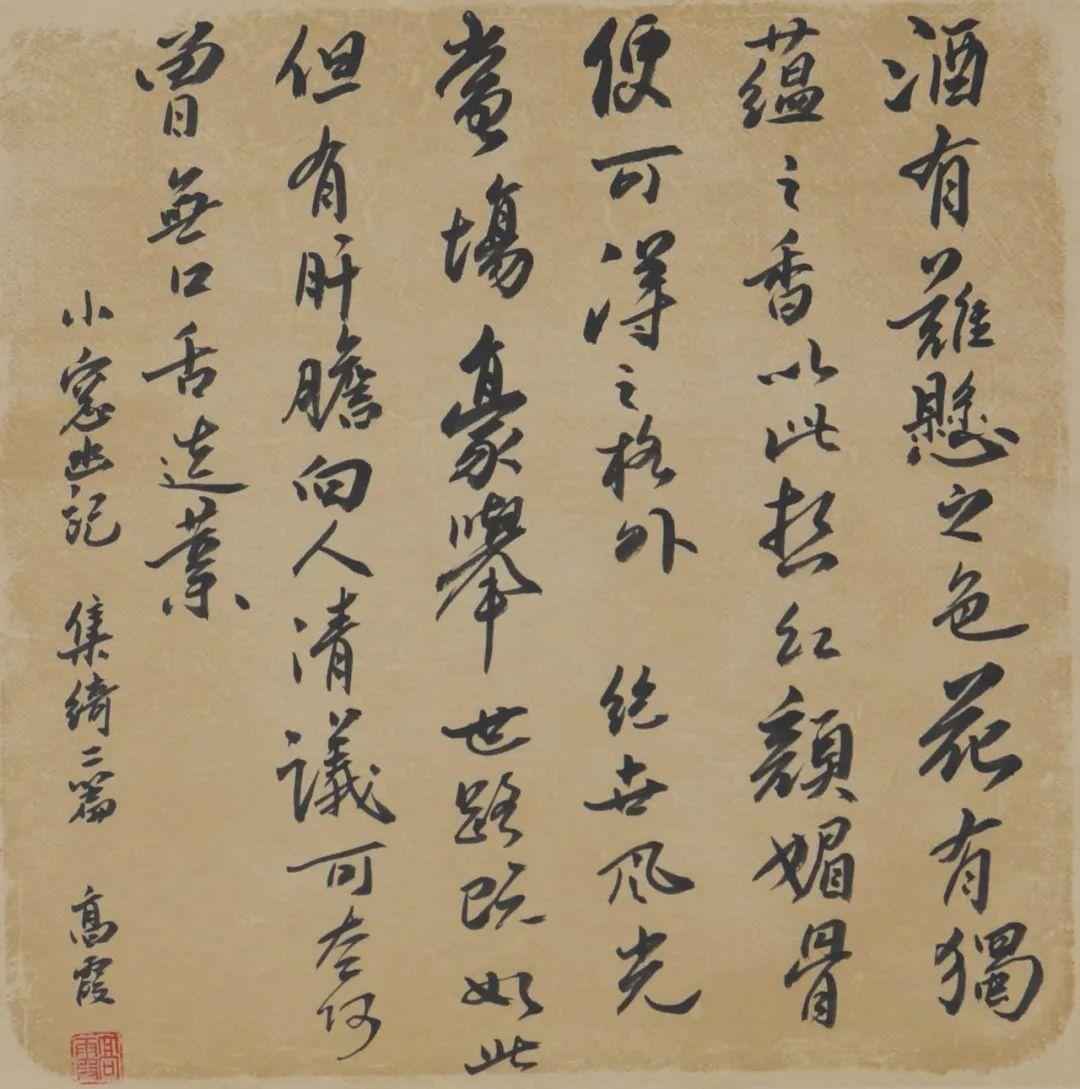 酒有難懸之色花有獨
蘊之香以此想紅顏媚骨
便可得之格外 絕世風光
當場豪舉世路既如此
但有肝膽向人清議可奈何
曾無口舌造業
小窓幽記 集綺二篇 高霞
高霞